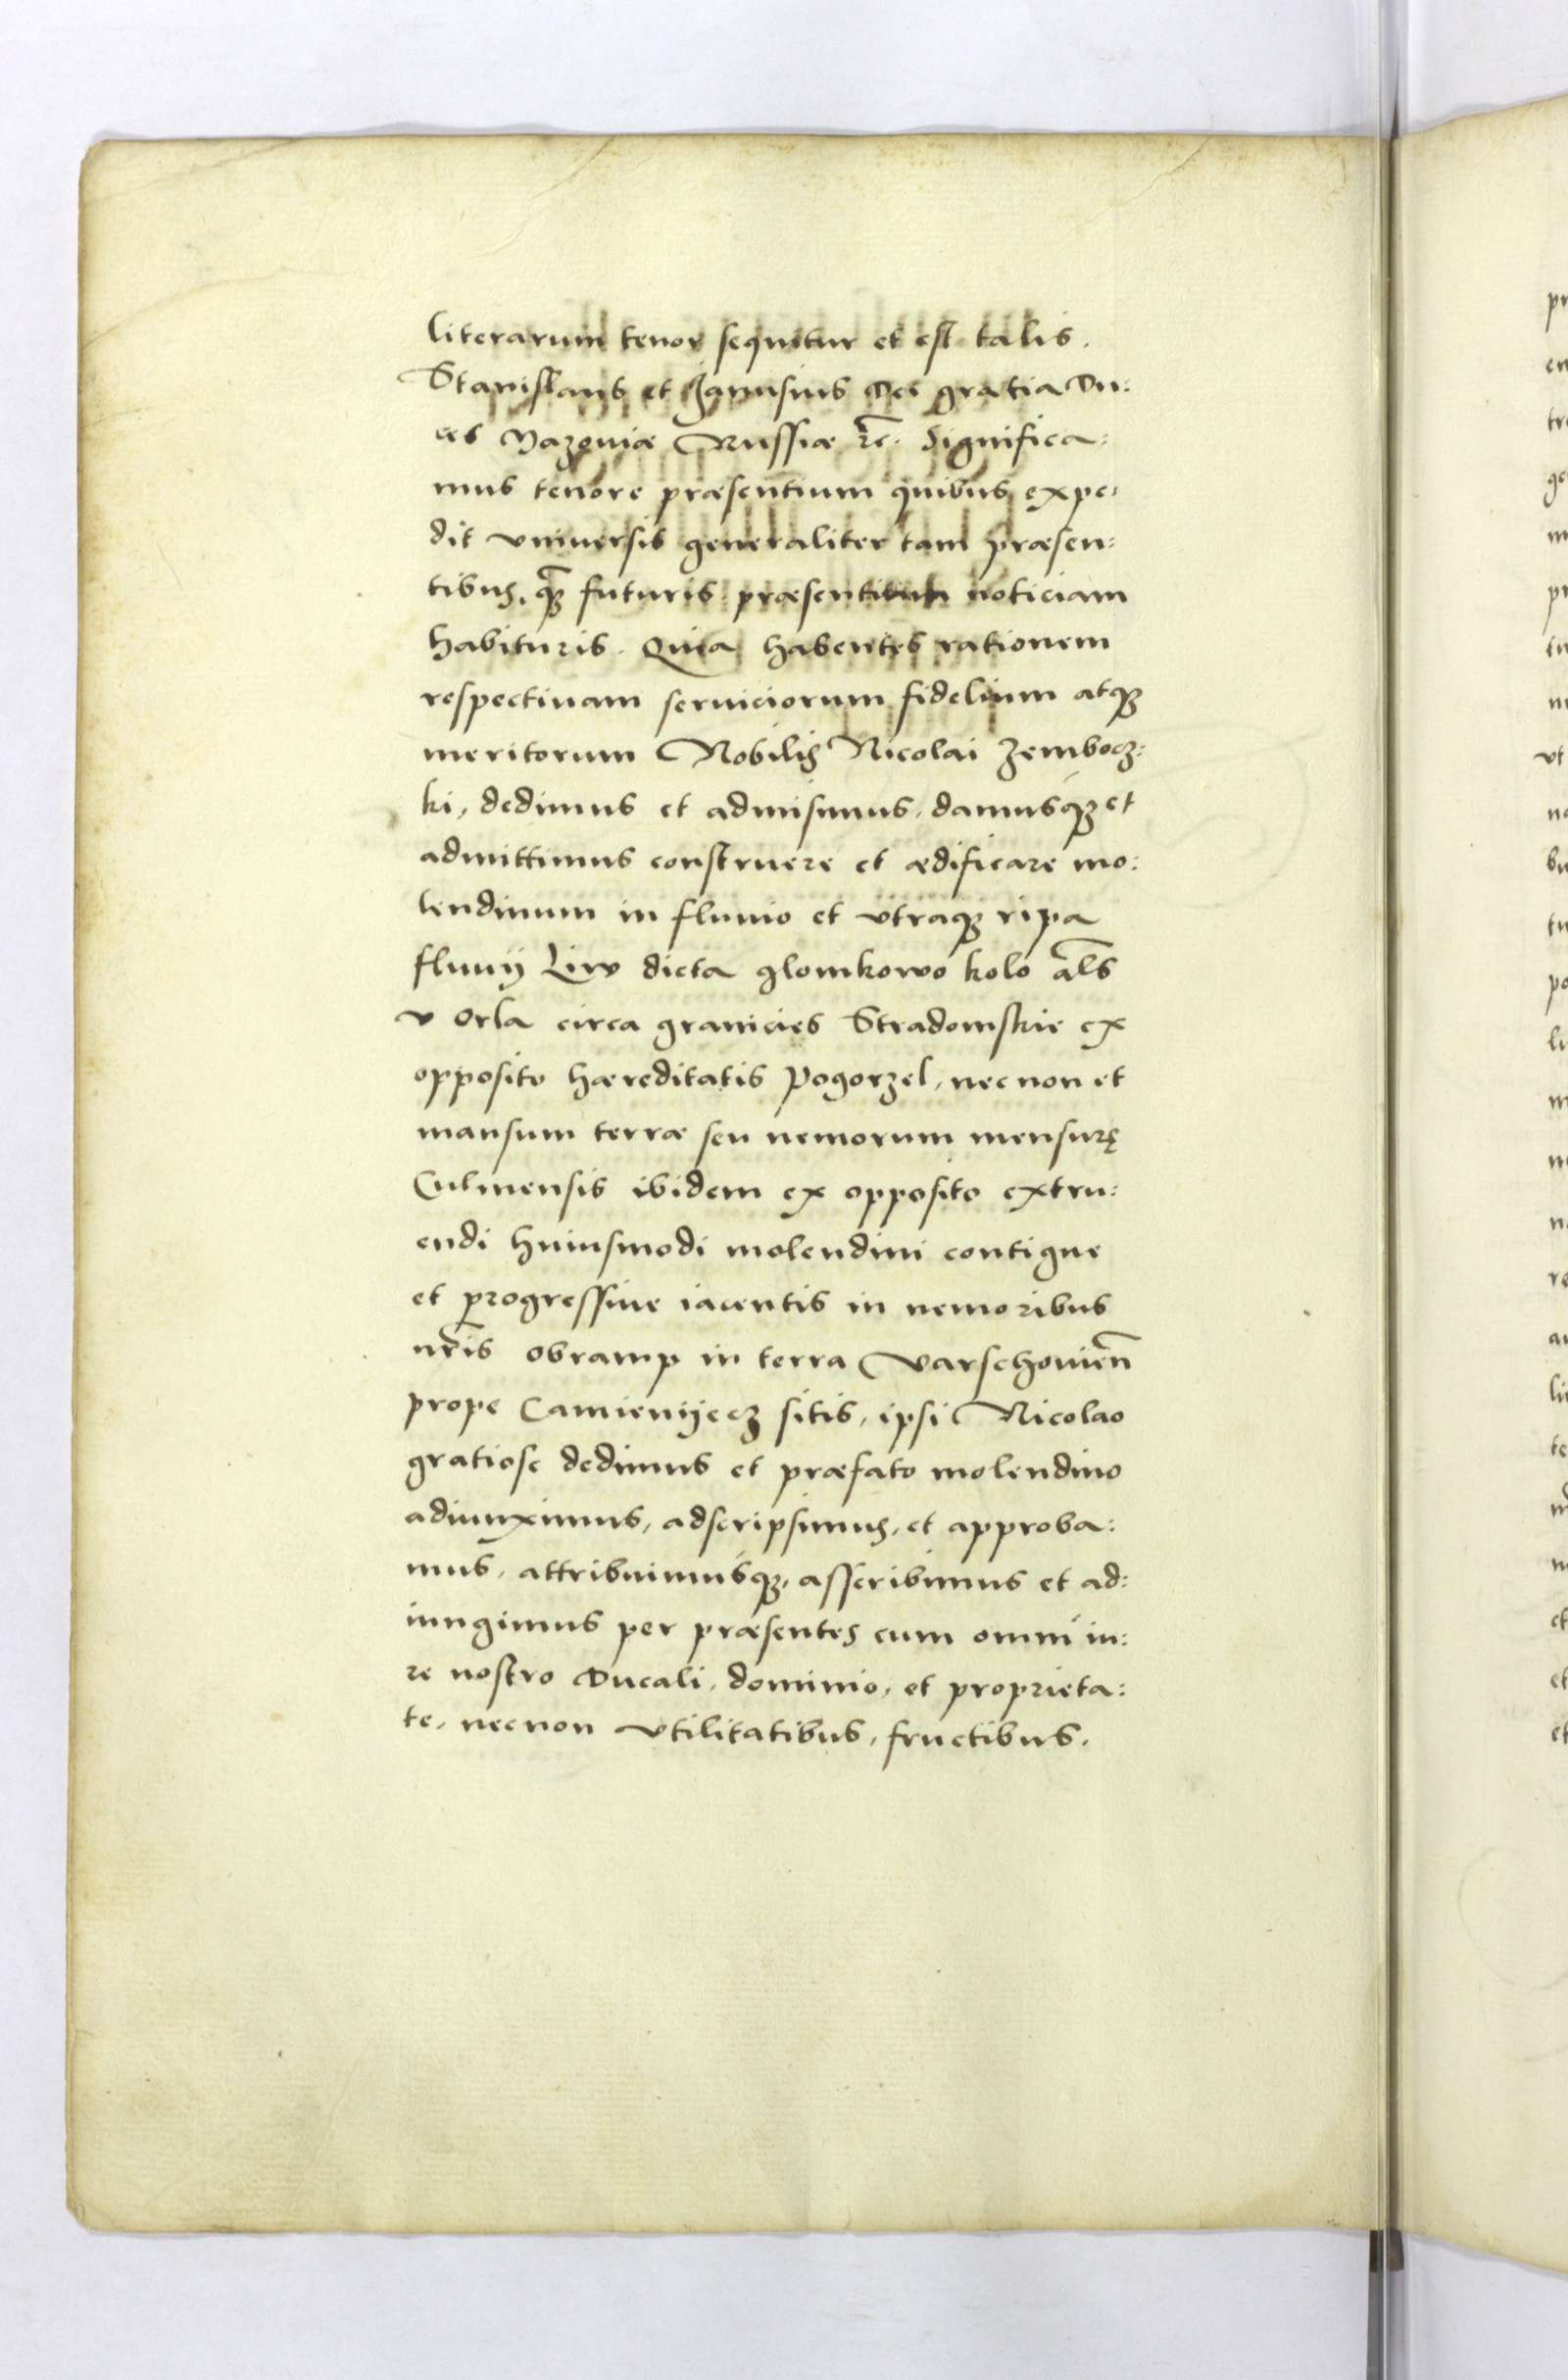 literarum tenor sequitur et est talis.
Stanislaus et Janusius Dei gratia Du:
ces Mazoviæ Russiæ rc̄. Significa:
mus tenore præsentium quibus expe:
dit vniuersis generaliter tam præsen:
tibus, q̃ꝫ futuris præsentium noticiam
habituris. Quia habentes rationem
respectiuam seruiciorum fidelium atqꝫ
meritorum Nobilis Nicolai Zembocz:
ki, dedimus et admisimus, damusqꝫ et
admittimus construere et ædificare mo:
lendinum in fluuio et vtraqꝫ ripa
fluuij Liw dicta glomkowo kolo al̄s
v Orla circa granicies Stradomskie ex
opposito hæreditatis Pogorzel, necnon et
mansum terræ seu nemorum mensurę
Culmensis ibidem ex opposito extru:
endi huiusmodi molendini contigue
et progressiue iacentis in nemoribus
nr̄is obramp in terra Varschouien̄
prope Camienijecz sitis, ipsi Nicolao
gratiose dedimus et præfato molendino
adiunximus, adscripsimus, et approba:
mus, attribuimusqꝫ, asscribimus et ad:
iungimus per præsentes cum omni iu:
re nostro Ducali, dominio, et proprieta:
te, necnon vtilitatibus, fructibus.